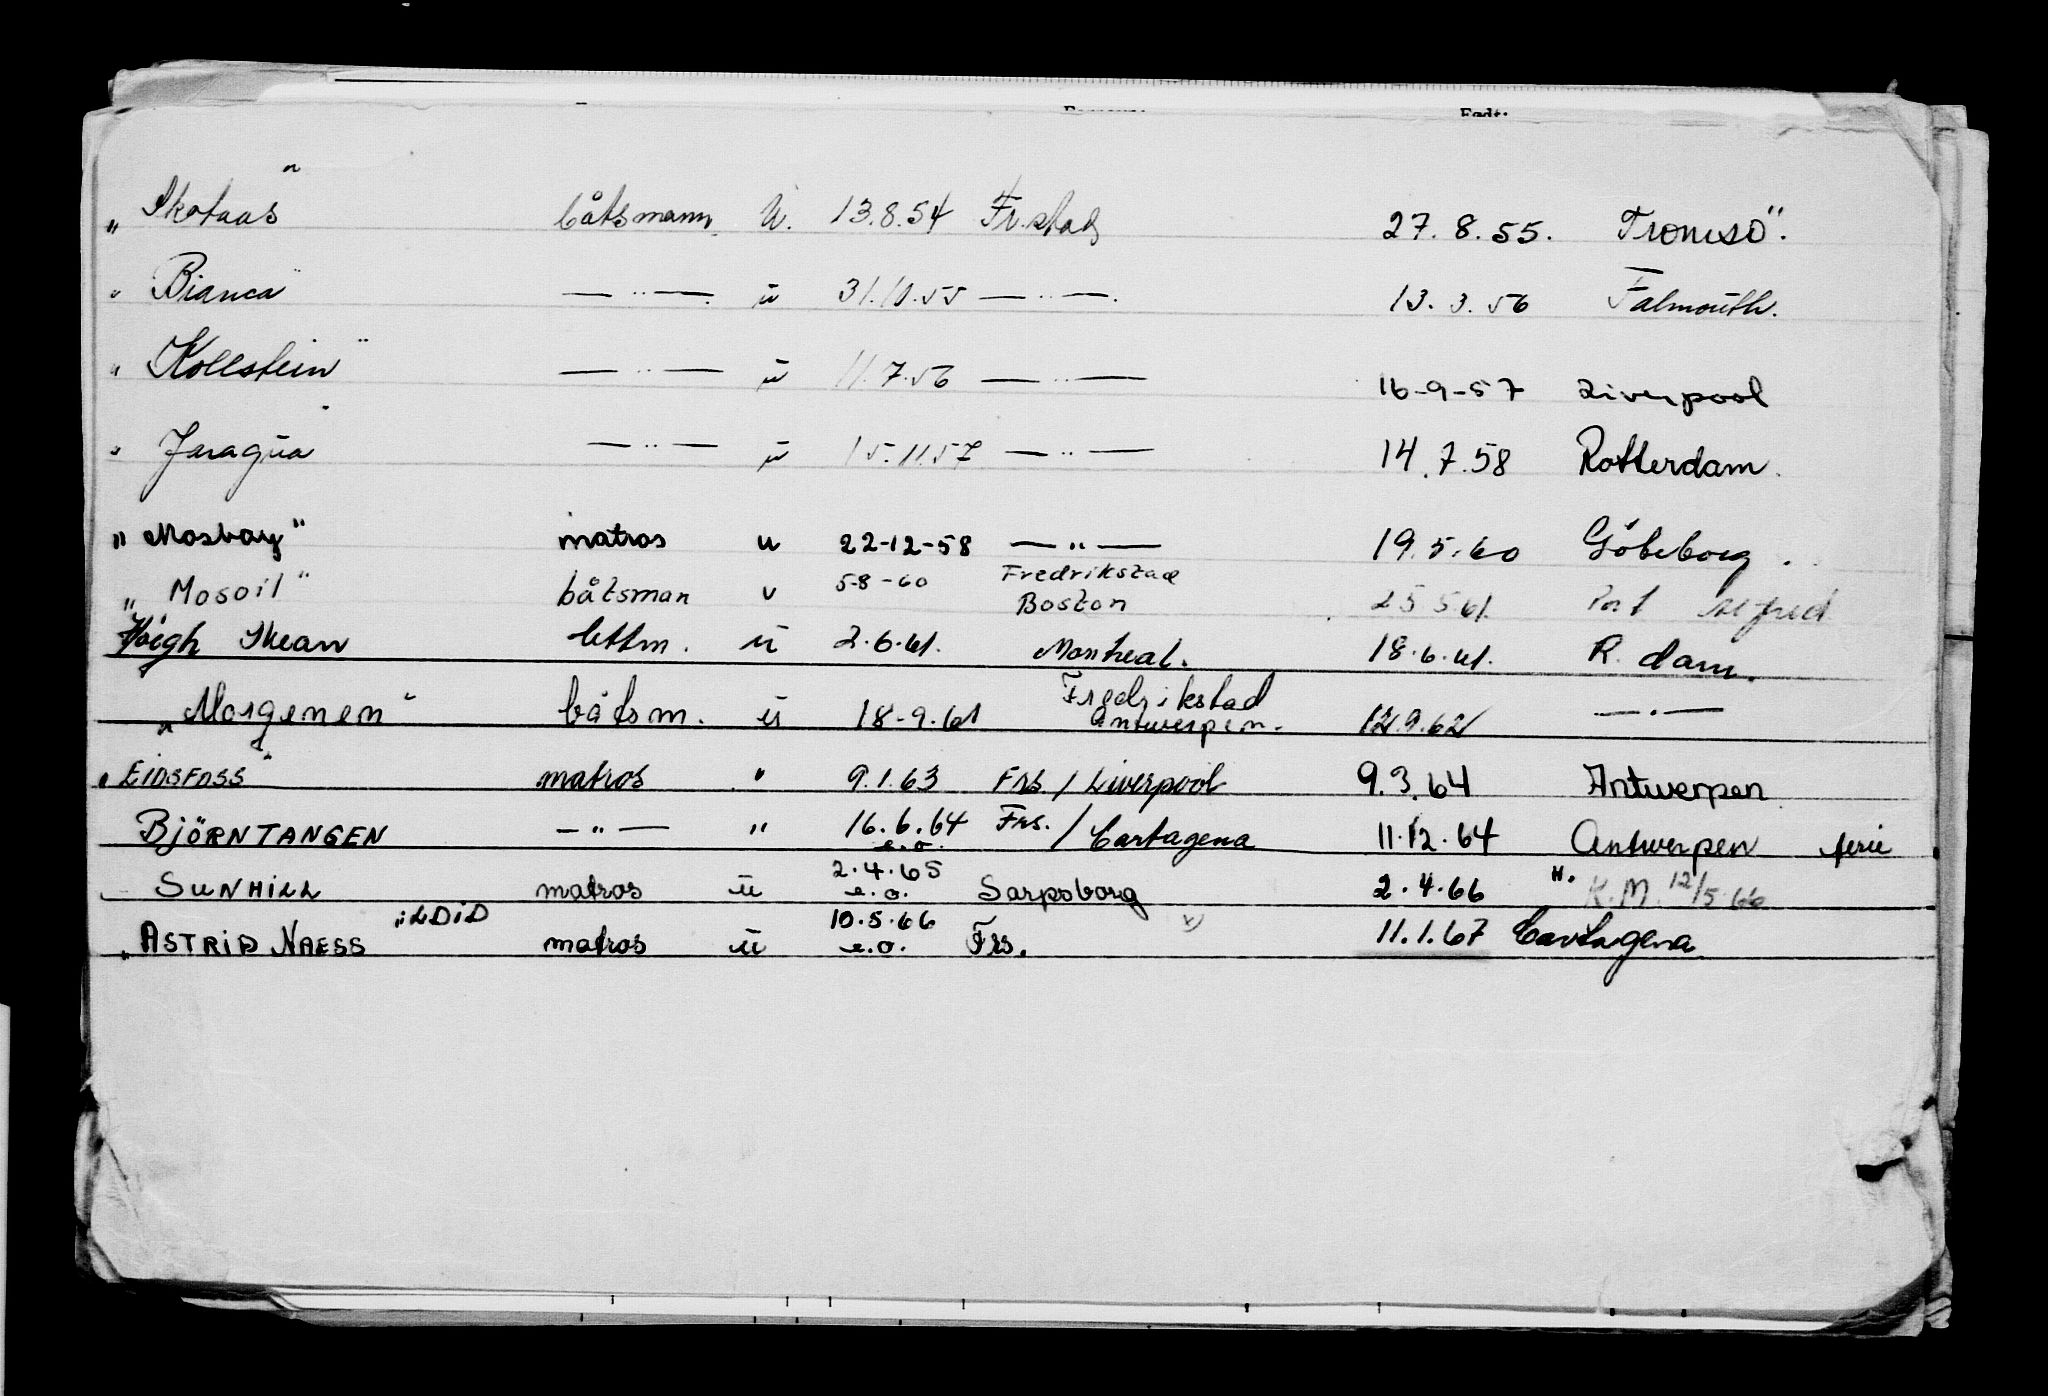 Født:
"Skotaas" båtsmann U. 13.8.54 Fr.stad 27.8.55. Tromsö.
"Bianca" — " — u 31.10.55 — " — 13.3.56 Falmouth.
"Kollstein" — " — u 11.7.56 — " — 16-9-57 Liverpool
"Jaragua" — " — u 15.11.57 — " — 14.7.58 Rotterdam.
"Mosbay" matros u 22-12-58 — " — 19.5.60 Göteborg.
"Mosoil" båtsman v 5-8-60 Fredrikstad Boston 25 5 61. Port Alfred
Høigh Skean lettm. u 2.6.61. Montreal. 18.6.61. R.dam.
"Morgenen" båtsm. u 18-9.61 Fredrikstad Antwerpen. 12.9.62 — " —
"EIDSFOSS" matros " 9.1.63 Frs. / Liverpool 9.3.64 Antwerpen
BJÖRNTANGEN — " — " 16.6.64 e.o. Frs. / Cartagena 11.12.64 Antwerpen ferie
SUNHILL matros u 2.4.65 e.o. Sarpsborg 2.4.66 H. K.M. 12/5.66
"ASTRID NAESS "LDID matros u 10.5.66 e.o. Frs. v) 11.1.67 Cartagena